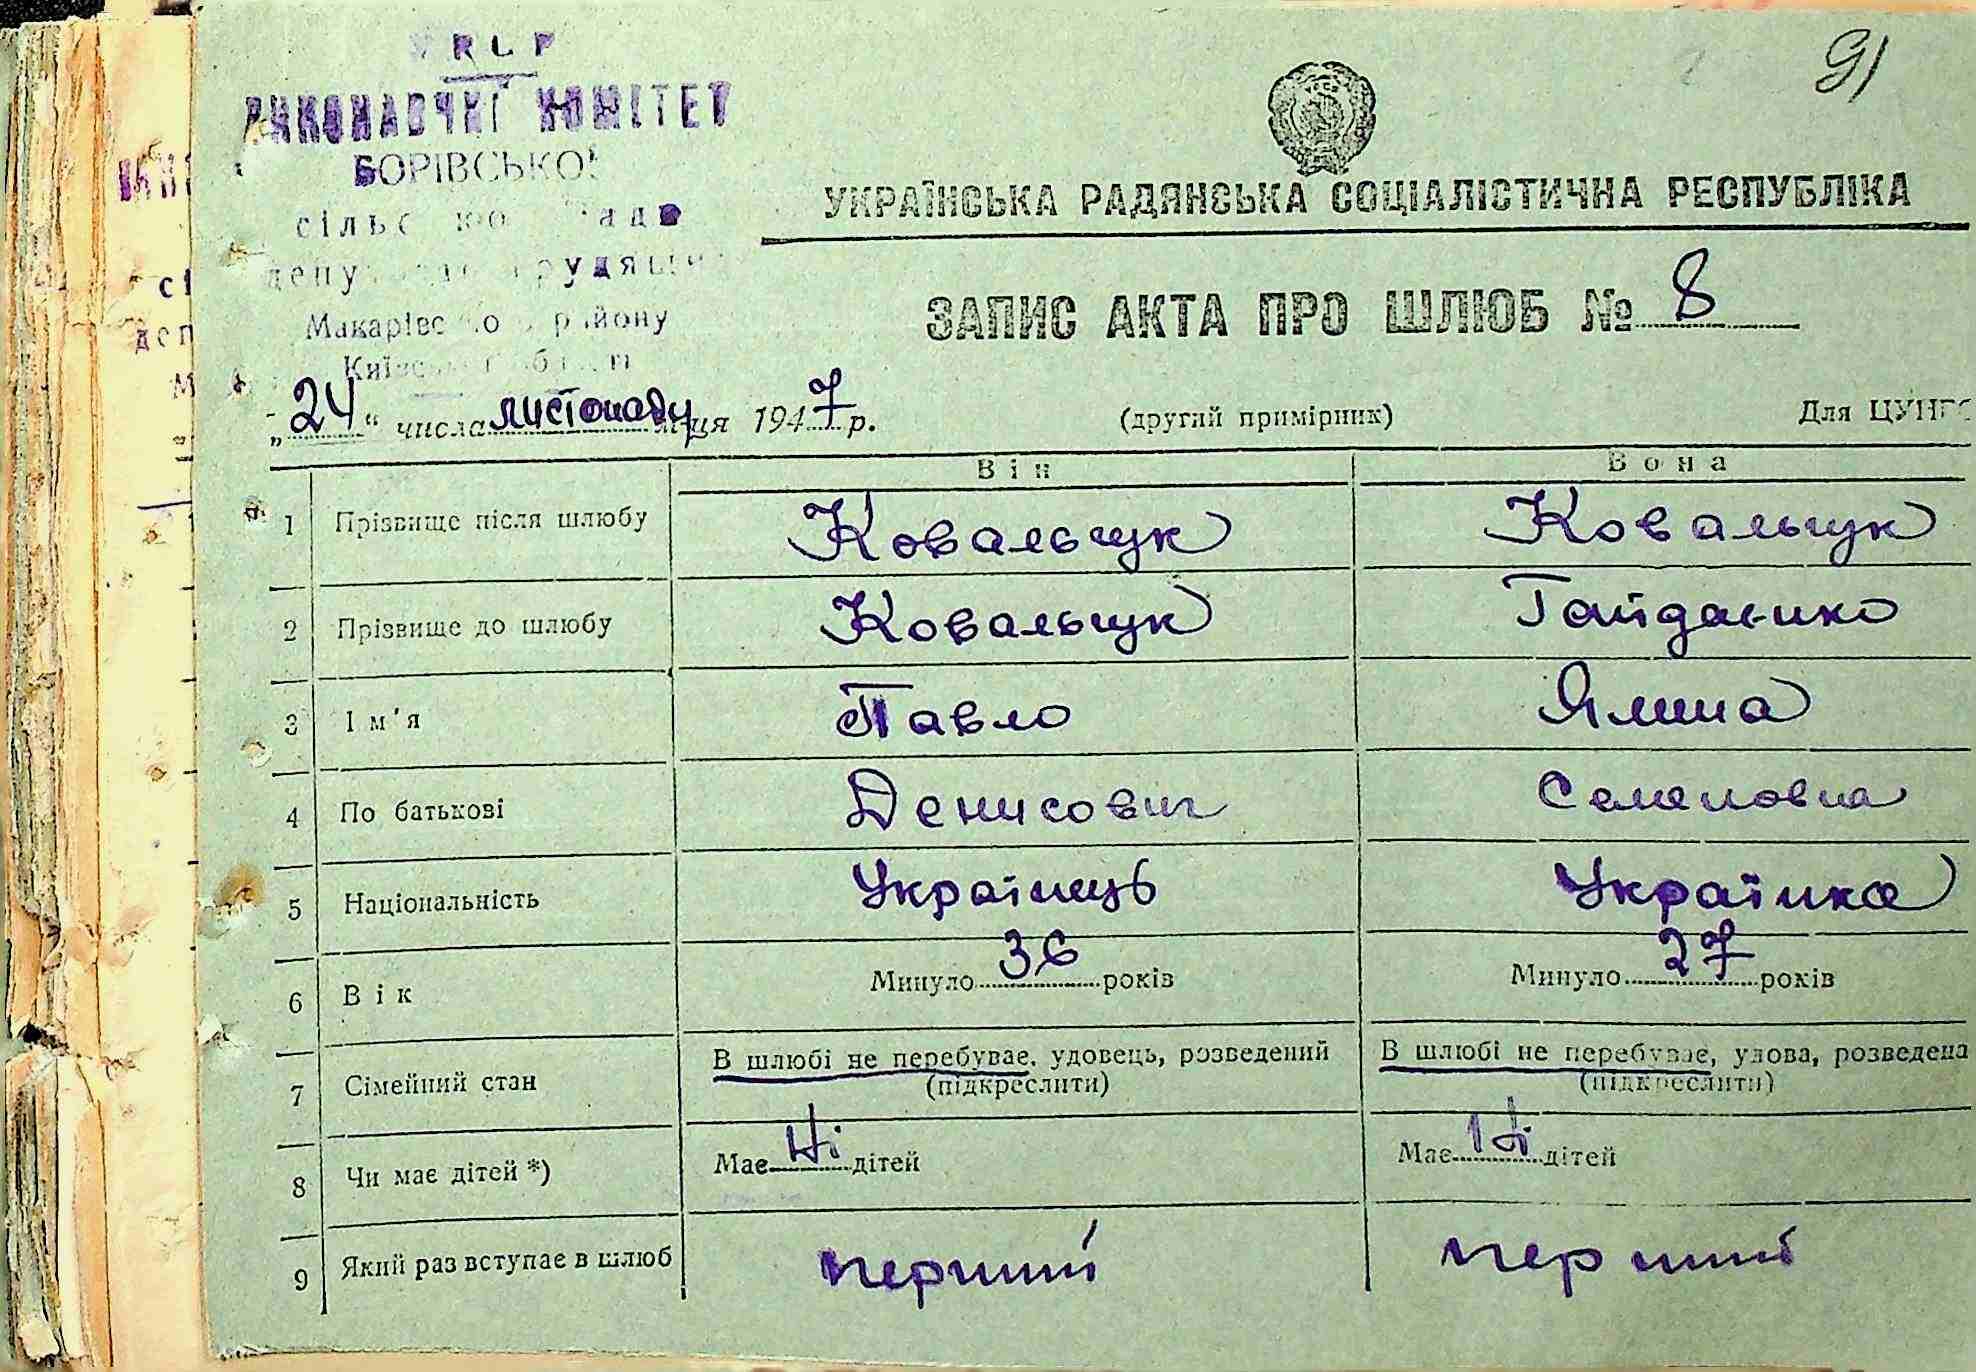 91
УРСР
ВИКОНАВЧИЙ КОМІТЕТ
БОРІВСЬКОЇ
сільської Ради
депутатів трудящих
Макарівського району
Київської області
УКРАЇНСЬКА РАДЯНСЬКА СОЦІАЛІСТИЧНА РЕСПУБЛІКА
ЗАПИС АКТА ПРО ШЛЮБ № 8
„24“ числа листопаду м-ця 1947 р. (другий примірник) Для ЦУНГО
Він Вона
1 Прізвище після шлюбу Ковальчук Ковальчук
2 Прізвище до шлюбу Ковальчук Гайданко
3 Ім'я Павло Ялина
4 По батькові Денисович Семеновна
5 Національність Українець Українка
6 Вік Минуло 36 років Минуло 27 років
7 Сімейний стан В шлюбі не перебуває, удовець, розведений (підкреслити) В шлюбі не перебуває, удова, розведена (підкреслити)
8 Чи має дітей *) Має Ні дітей Має Ні дітей
9 Який раз вступає в шлюб перший перший